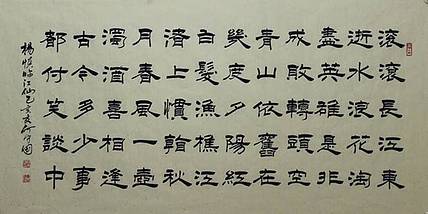 滚滚長江東
逝水浪花淘
盡英雄是非
成敗轉頭空
青山依舊在
幾度夕陽紅
白髮漁樵江
渚上慣看秋
月春風一壺
濁酒喜相逢
古今多少事
都付笑談中
楊慎臨江仙